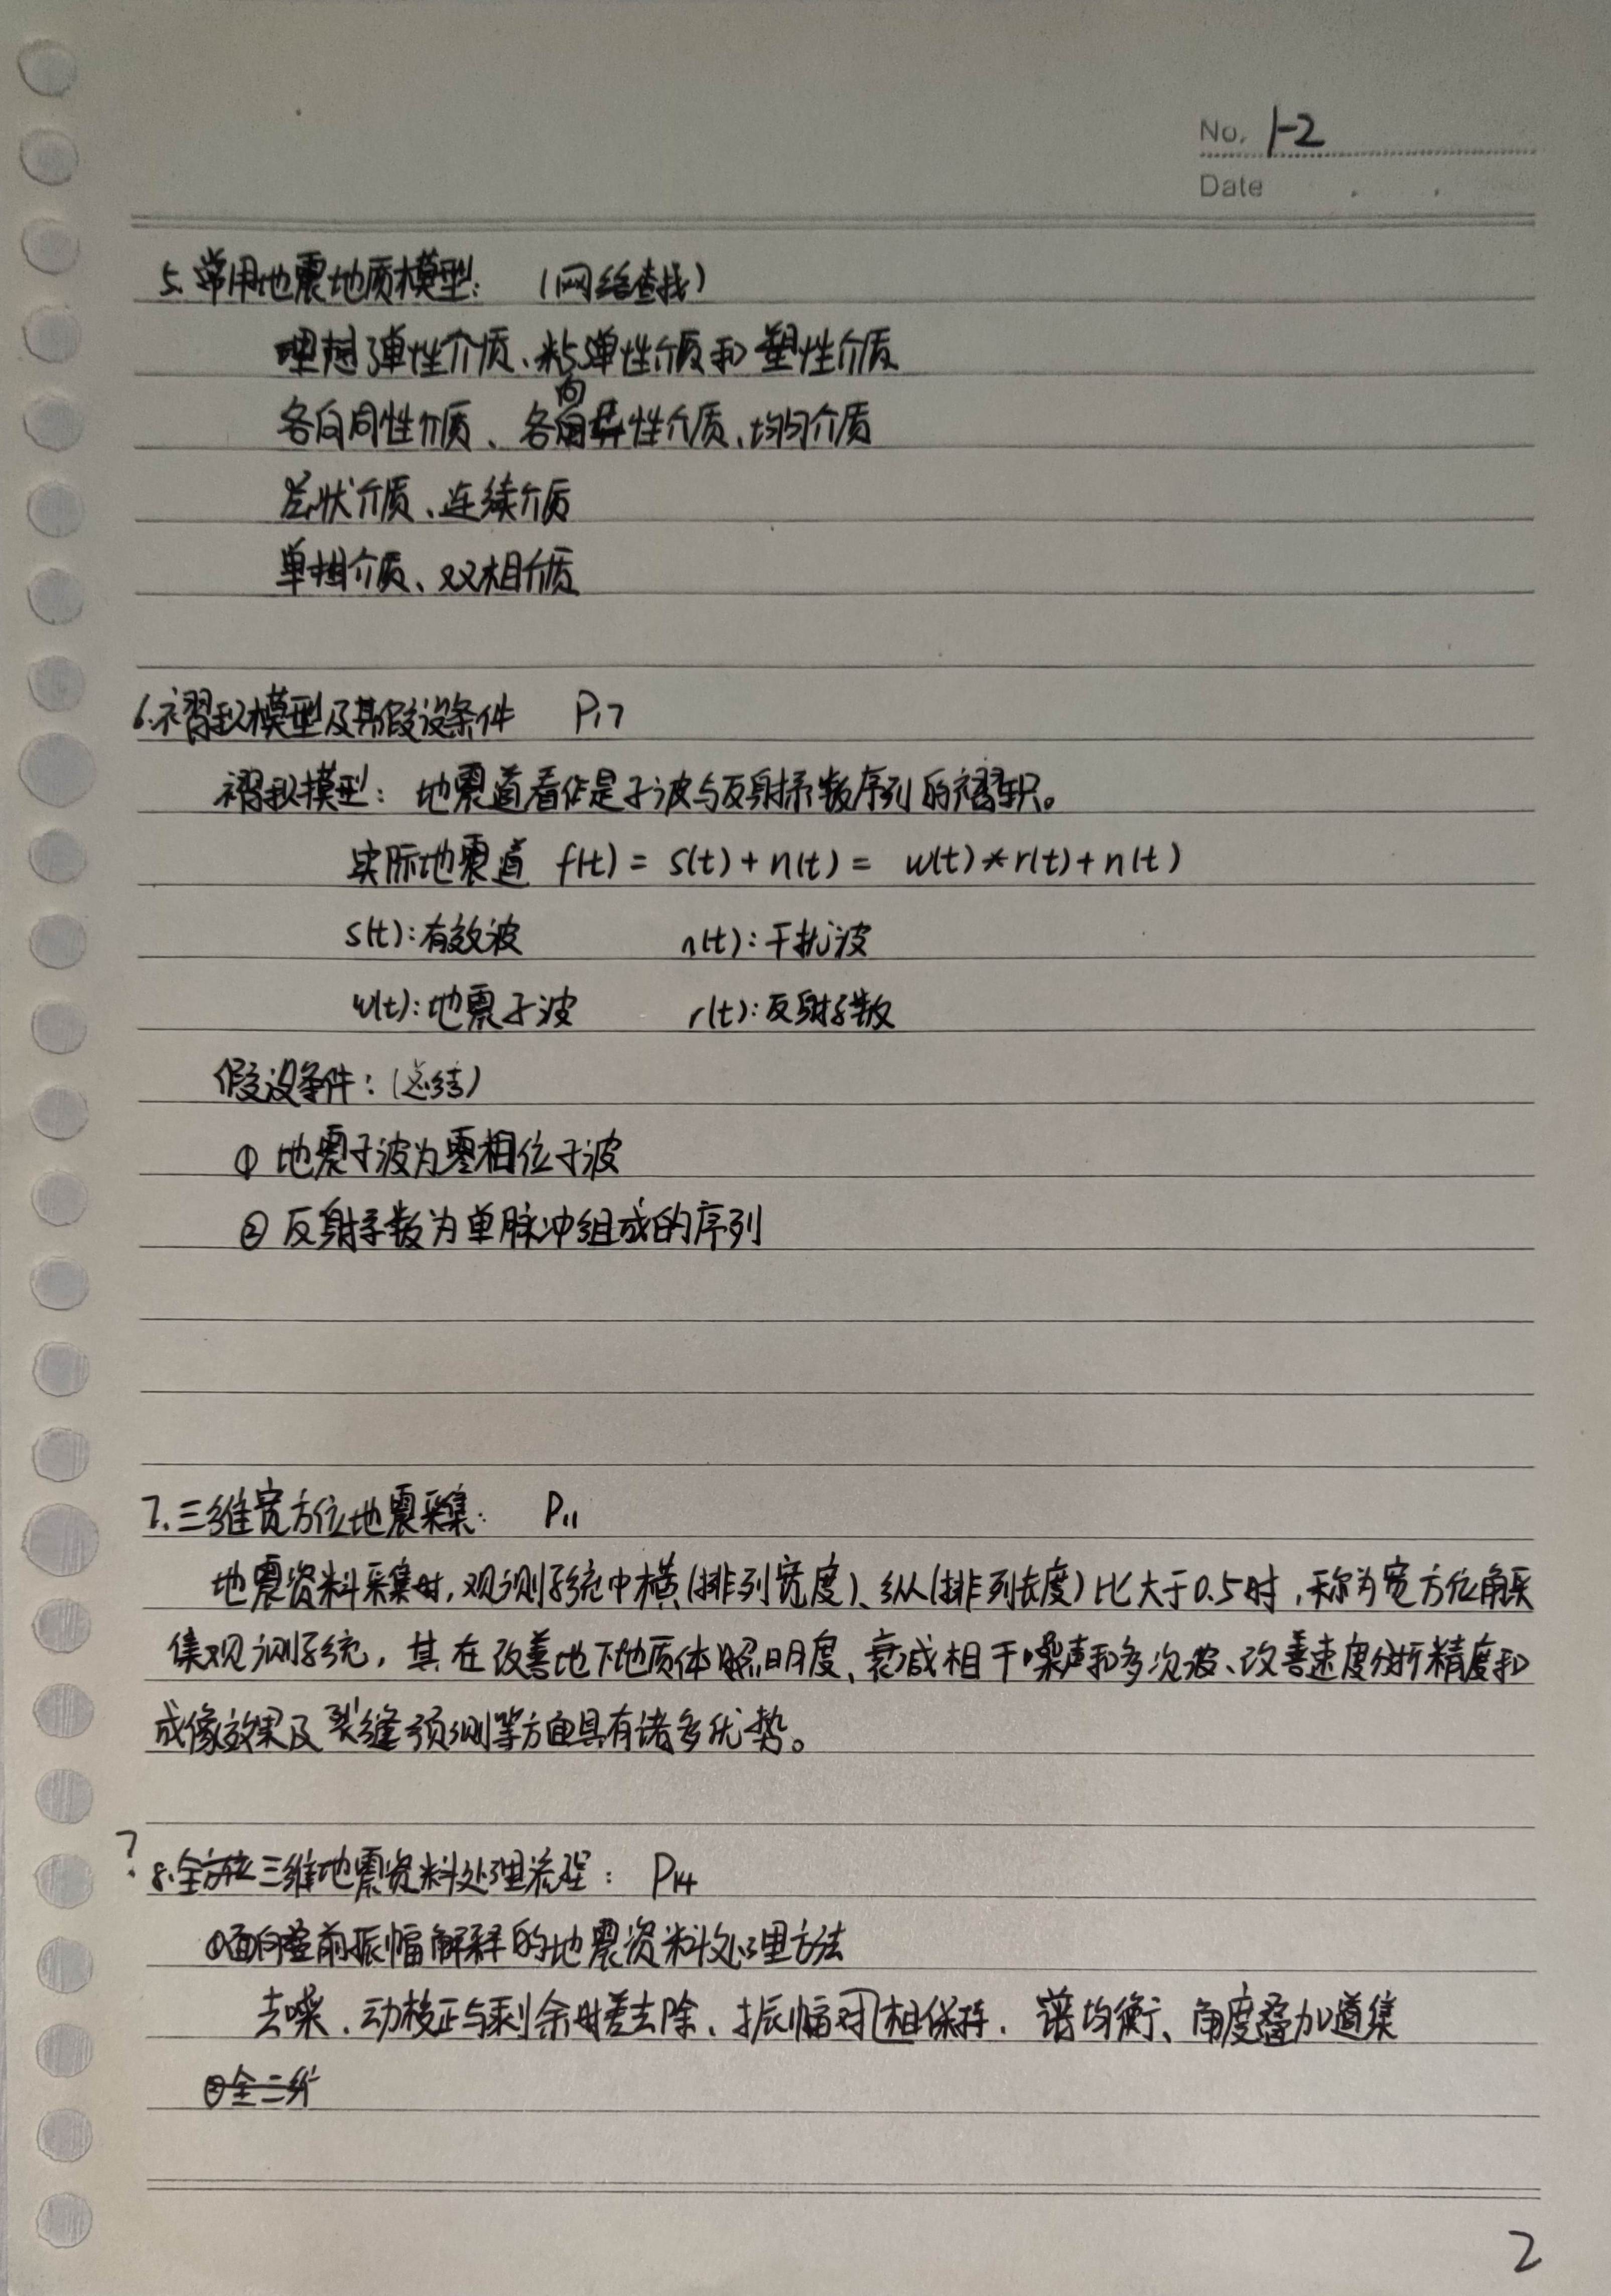 No. 1-2
Date
5. 常用地震地质模型: (网络查找)
理想弹性介质、粘弹性介质和塑性介质
各向同性介质、各向异性介质、均匀介质
层状介质、连续介质
单相介质、双相介质
6. 褶积模型及其假设条件 P17
褶积模型: 地震道看作是子波与反射系数序列的褶积。
实际地震道 f(t) = s(t) + n(t) = w(t) * r(t) + n(t)
s(t): 有效波 n(t): 干扰波
w(t): 地震子波 r(t): 反射系数
假设条件: (总结)
① 地震子波为零相位子波
② 反射系数为单脉冲组成的序列
7. 三维宽方位地震采集: P11
地震资料采集时, 观测系统中横(排列宽度)、纵(排列长度)比大于0.5时, 称为宽方位角采
集观测系统, 其在改善地下地质体照明度、衰减相干噪声和多次波、改善速度分析精度和
成像效果及裂缝预测等方面具有诸多优势。
? 8. 全方位三维地震资料处理流程: P14
①面向叠前振幅解释的地震资料处理方法
去噪、动校正与剩余时差去除、振幅相对保持、谱均衡、角度叠加道集
②全三维
2